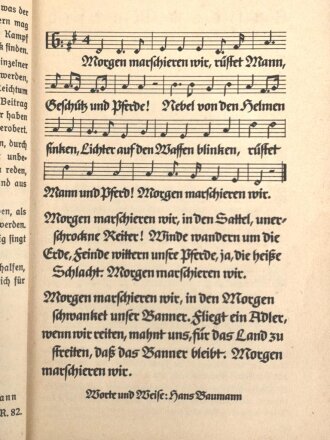 was der
ern mag
Kampf
k finden.
inzelner
werden,
Reichtum
Beitrag
r haben
erobert.
n, durch
unbe-
reden,
nd aus
en, als
werden.
ig singt
halfen,
ich für
ann
R. 82.
6.
4
Morgen marschieren wir, rüstet Mann,
Geschütz und Pferde! Nebel von den Helmen
sinken, Lichter auf den Waffen blinken, rüstet
Mann und Pferd! Morgen marschieren wir.
Morgen marschieren wir, in den Sattel, uner-
schrockne Reiter! Winde wandern um die
Erde, Feinde wittern unsre Pferde, ja, die heiße
Schlacht. Morgen marschieren wir.
Morgen marschieren wir, in den Morgen
schwanket unser Banner. Fliegt ein Adler,
wenn wir reiten, mahnt uns, für das Land zu
streiten, daß das Banner bleibt. Morgen
marschieren wir.
Worte und Weise: Hans Baumann